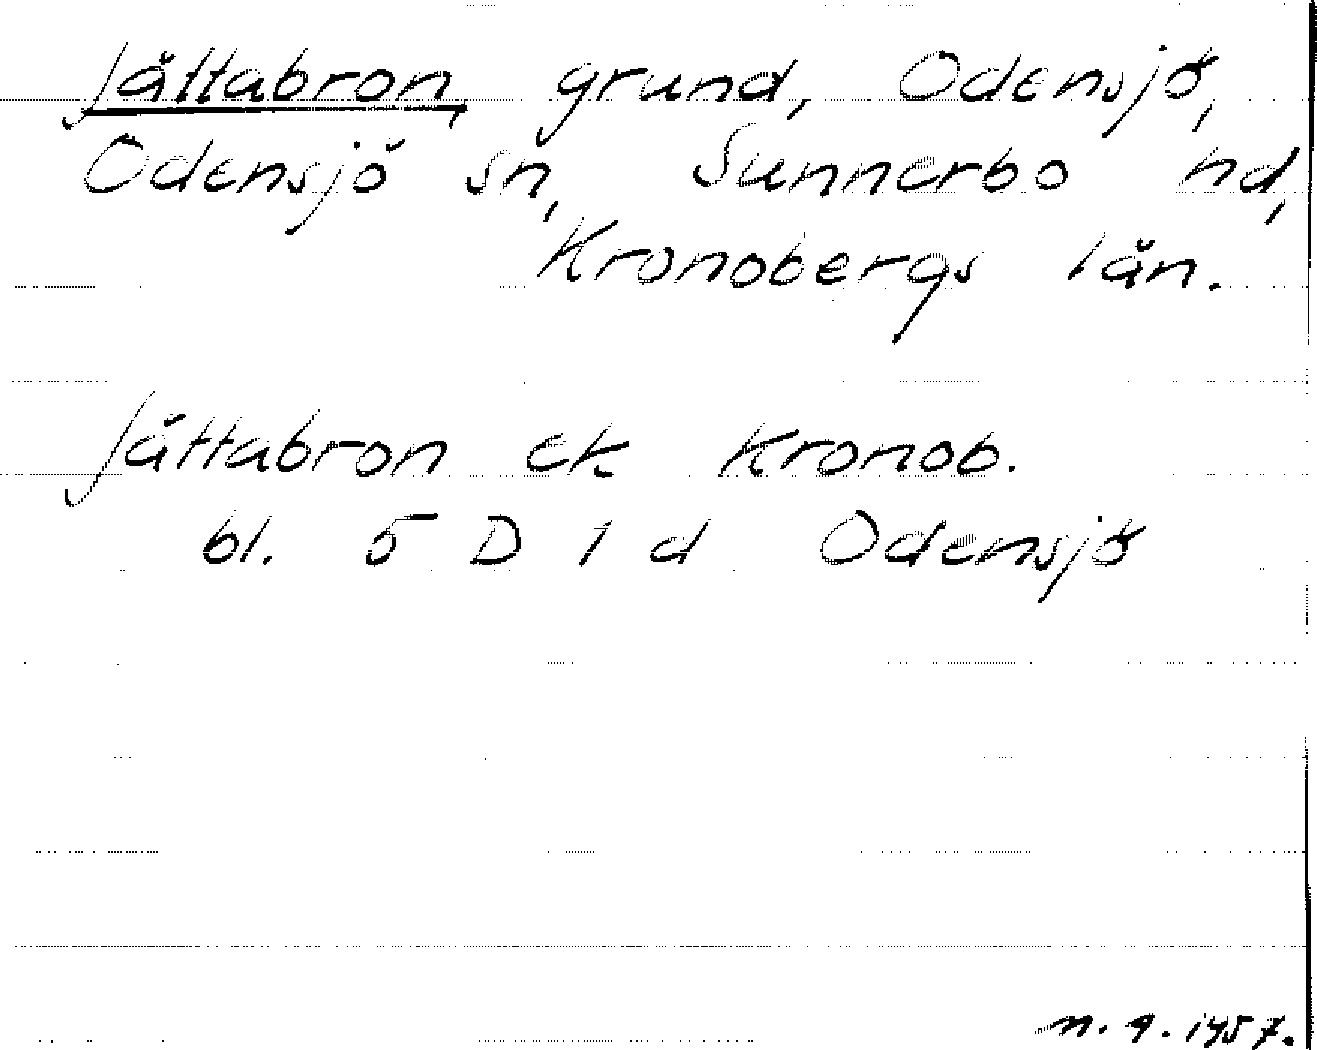 Jättabron, grund, Odensjö,
Odensjö sn, Sunnerbo hd,
Kronobergs län.
Jättabron ek Kronob.
bl. 5 D 1 d Odensjö
1957.